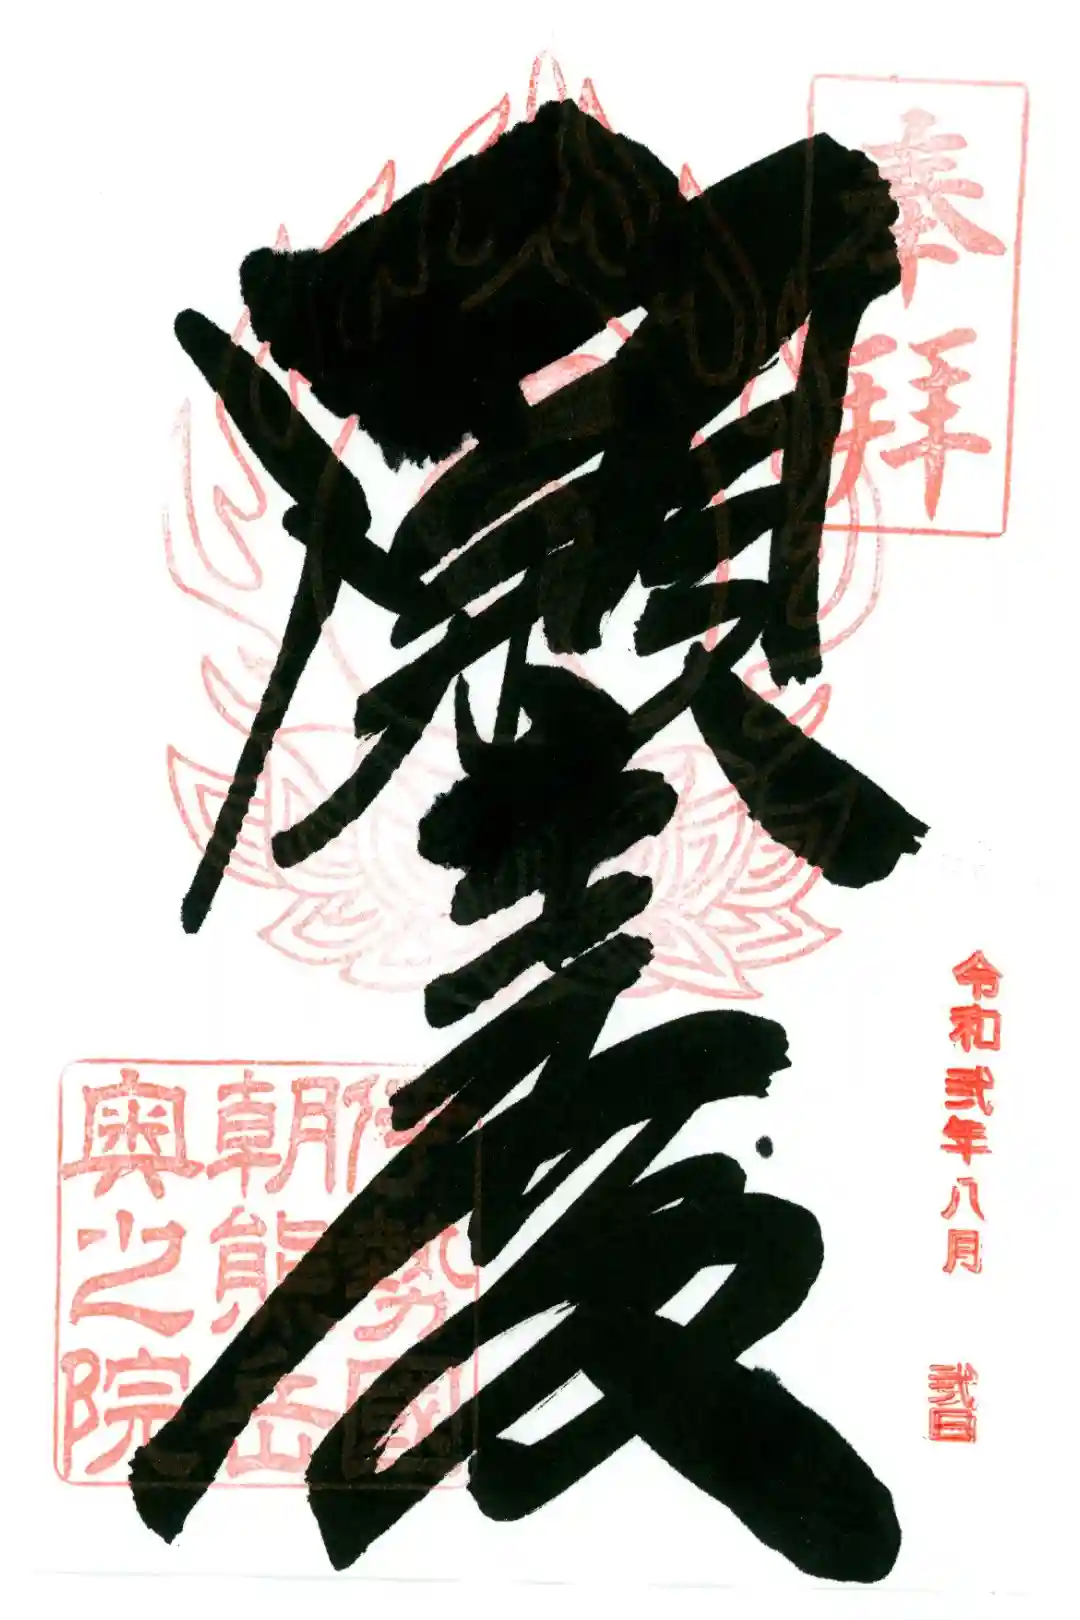 奉拝
令和弐年八月 弐日
願
伊勢國
朝熊岳
奥之院